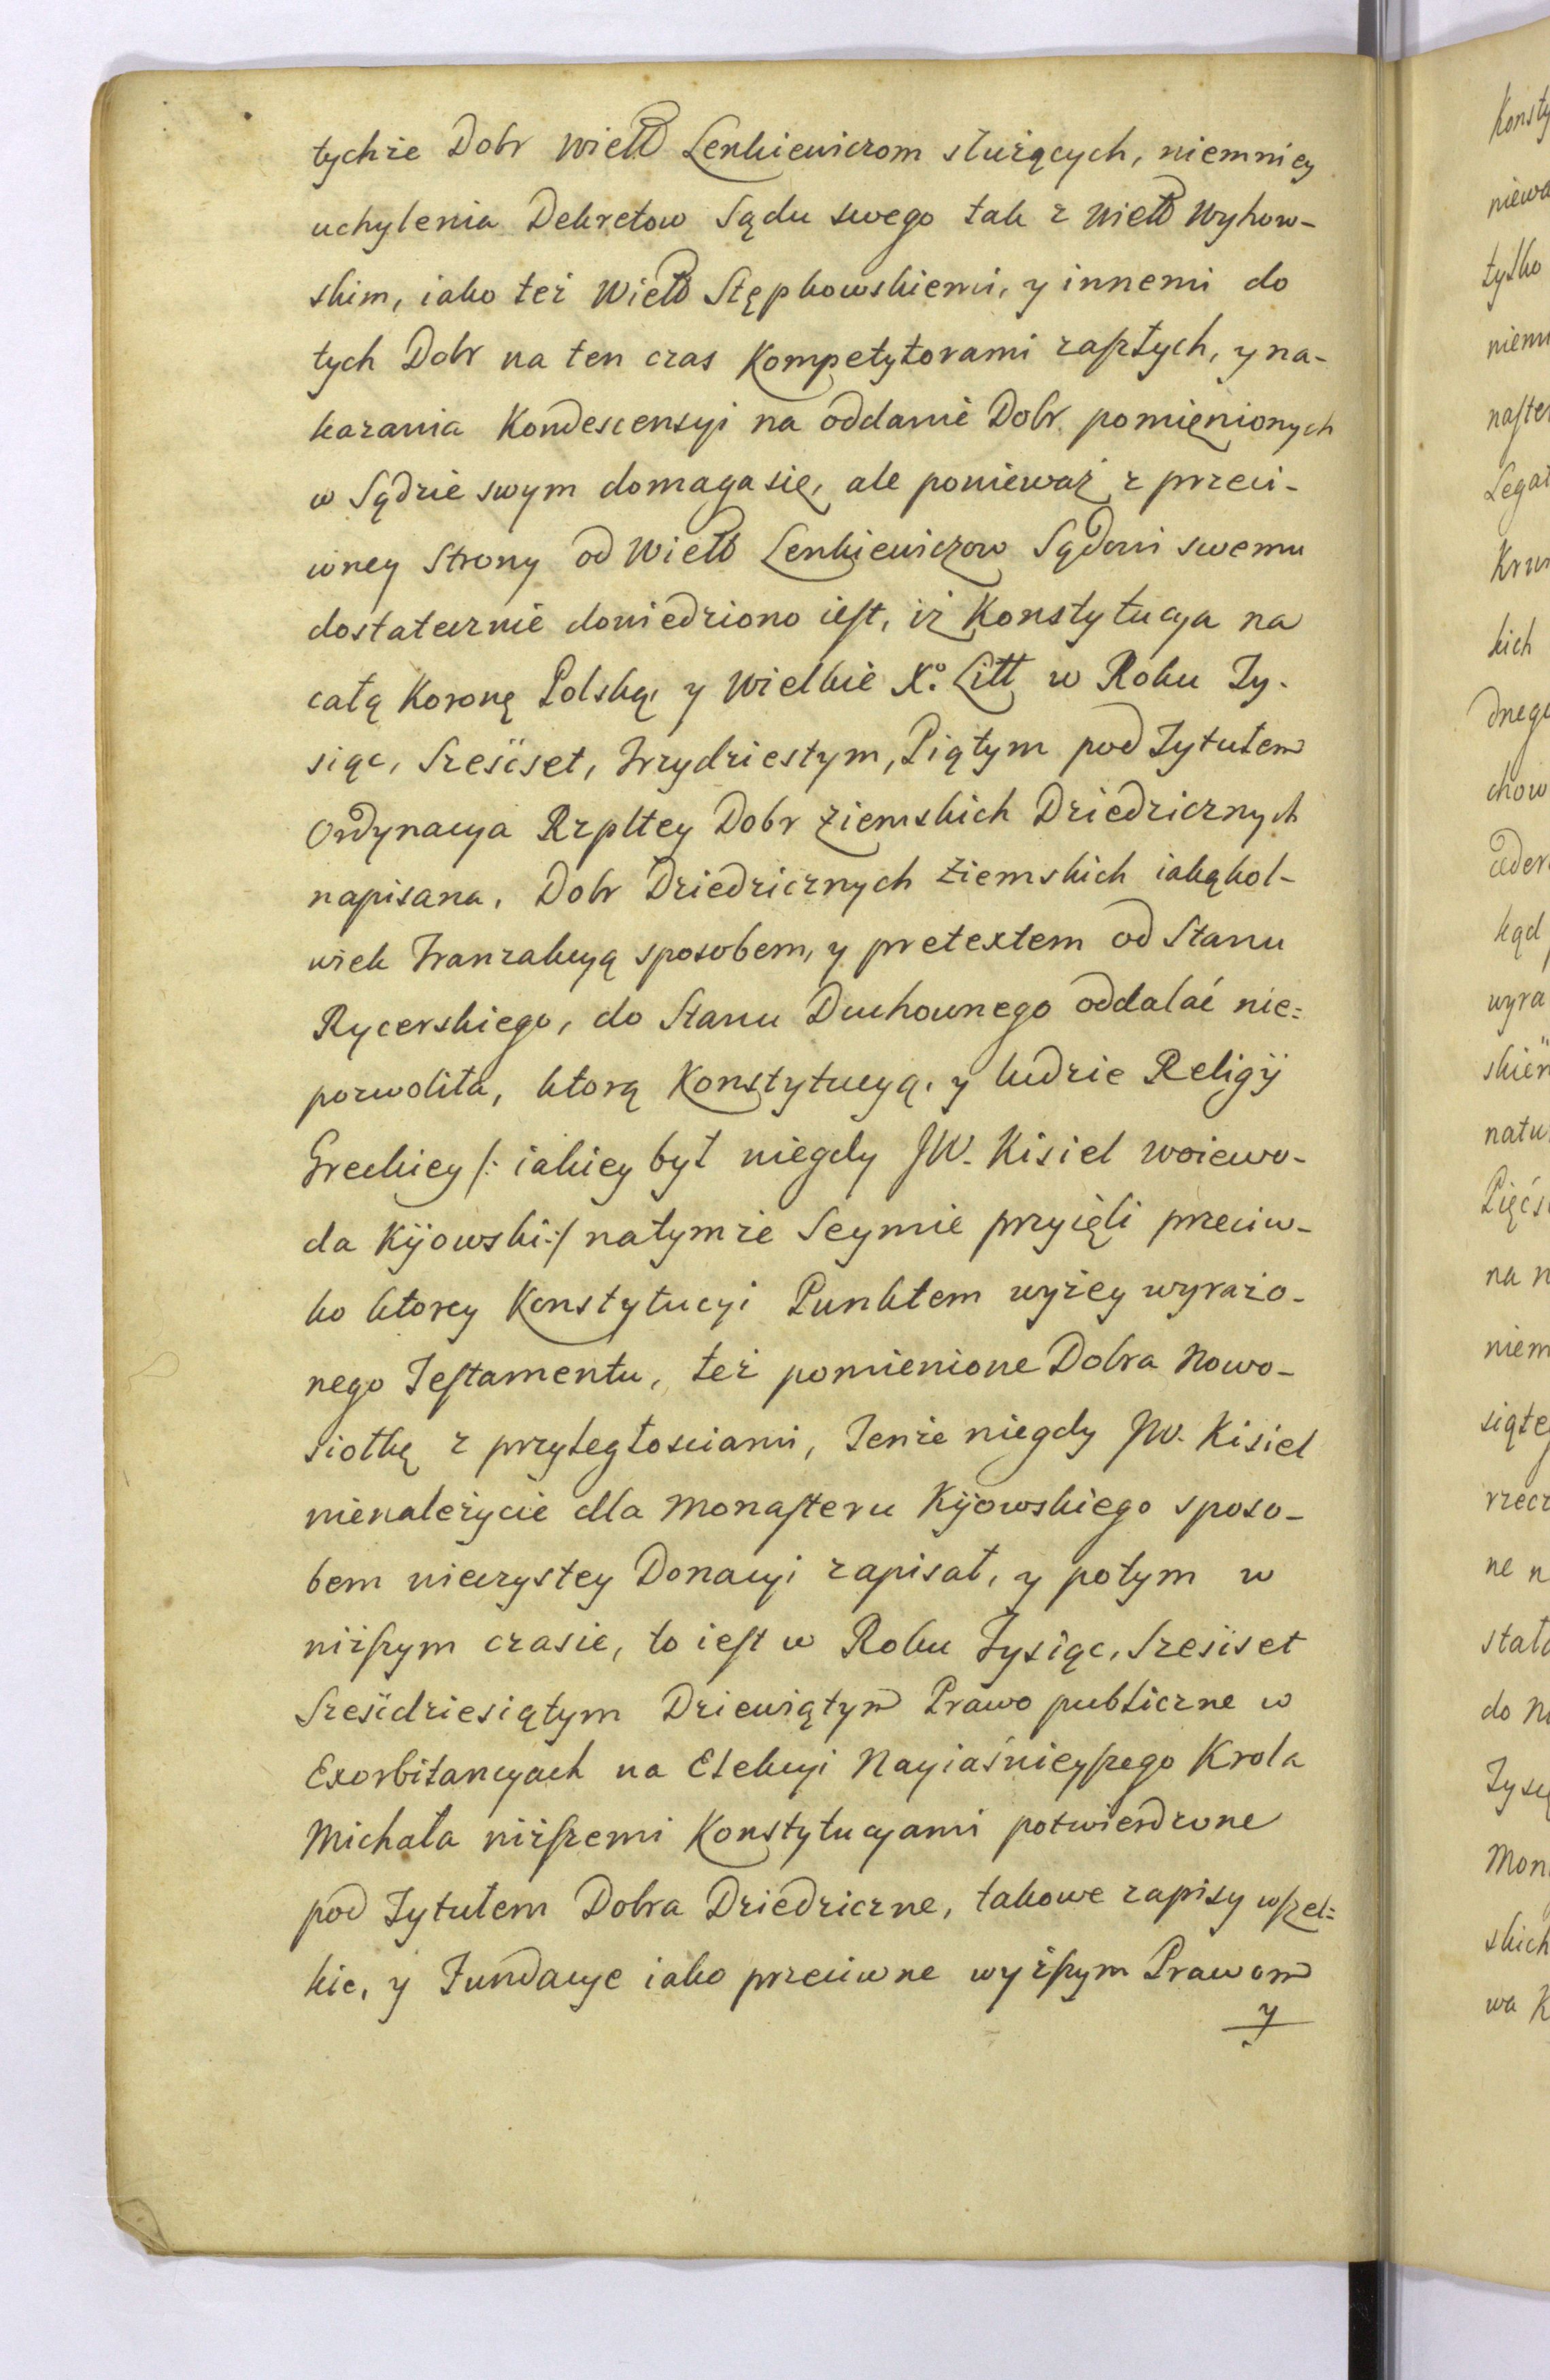 tychże Dobr Wielb Lenkiewiczom służących, niemniey
uchylenia Dekretow Sądu swego tak z Wielb Wyhow-
skim, iako też Wielb Stępkowskiemi, y innemi do
tych Dobr na ten czas Kompetytorami zaszłych, y na-
kazania Kondescensyi na oddanie Dobr pomięnionych
w Sądzie swym domaga się, ale ponieważ z przeci-
wney Strony od Wielb Lenkiewiczow Sądowi swemu
dostatecznie dowiedziono iest, iż Konstytucya na
całą Koronę Polską, y Wielkie X.o Litt w Roku Ty-
siąc, Sześćset, Trzydziestym, Piątym pod Tytułem
Ordynacya Rzpltey Dobr Ziemskich Dziedzicznych
napisana, Dobr Dziedzicznych Ziemskich iakąkol-
wiek Tranzakcyą sposobem, y pretextem od Stanu
Rycerskiego, do Stanu Duchownego oddalać nie=
pozwoliła, ktorą Konstytucyą, y ludzie Religÿ
Greckiey /: iakiey był niegdy JW. Kisiel woiewo-
da Kÿowski :/ natymże Seymie przyięli przeciw-
ko ktorey Konstytucyi Punktem wyżey wyrażo-
nego Testamentu, też pomienione Dobra Nowo-
siołkę z przyległosciami, Tenże niegdy JW. Kisiel
nienależycie dla Monasteru Kÿowskiego sposo-
bem wieczystey Donacyi zapisał, y potym w
niższym czasie, to iest w Roku Tysiąc, Sześćset
Sześćdziesiątym Dziewiątym Prawo publiczne w
Exorbitancyach na Elekcyi Nayiaśnieyszego Krola
Michała niższemi Konstytucyami potwierdzone
pod Tytułem Dobra Dziedziczne, takowe zapisy wszel=
kie, y Fundacye iako przeciwne wyższym Prawom
y
Konsty
niewa
tylko
niem
naste
Legat
kich
dnego
chow
kąd
wyra
skie
natu
Pięćs
na n
niem
siąte
rzecz
ne n
stał
do N
Tysi
Mon
skich
wa K